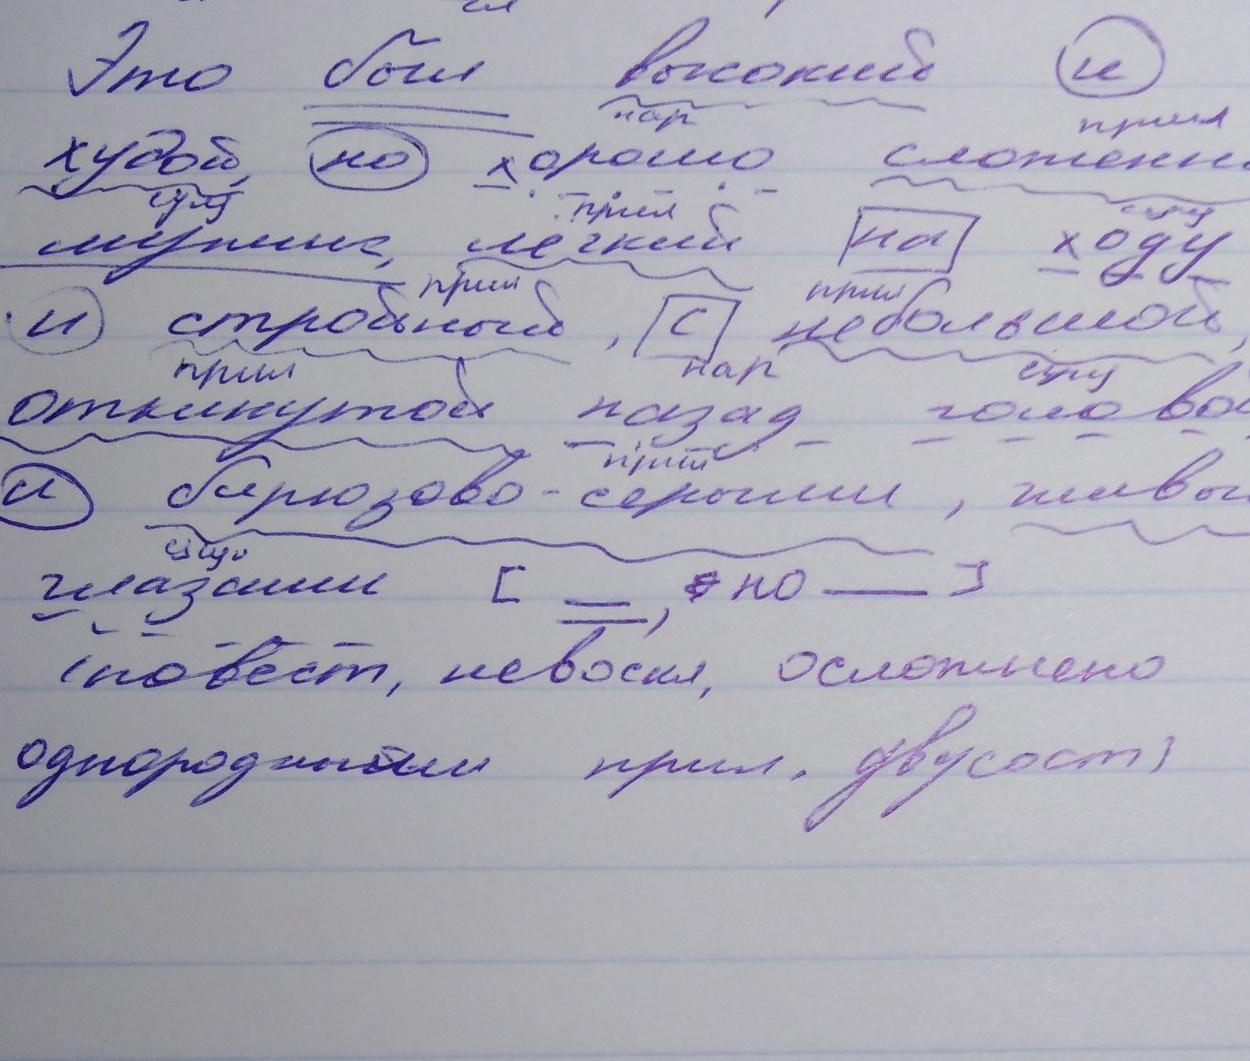 гл
Это был высокий и
нар прил
худой, но хорошо сложенн
сущ прил сущ
мужик, легкий на ходу
прил прил
и стройный, с небольшой,
прил нар сущ
откинутой назад голово
прил
и бирюзово-серыми, живы
сущ
глазами [ =, но — ]
(повест, невоскл, осложнено
однородными прил, двусост)